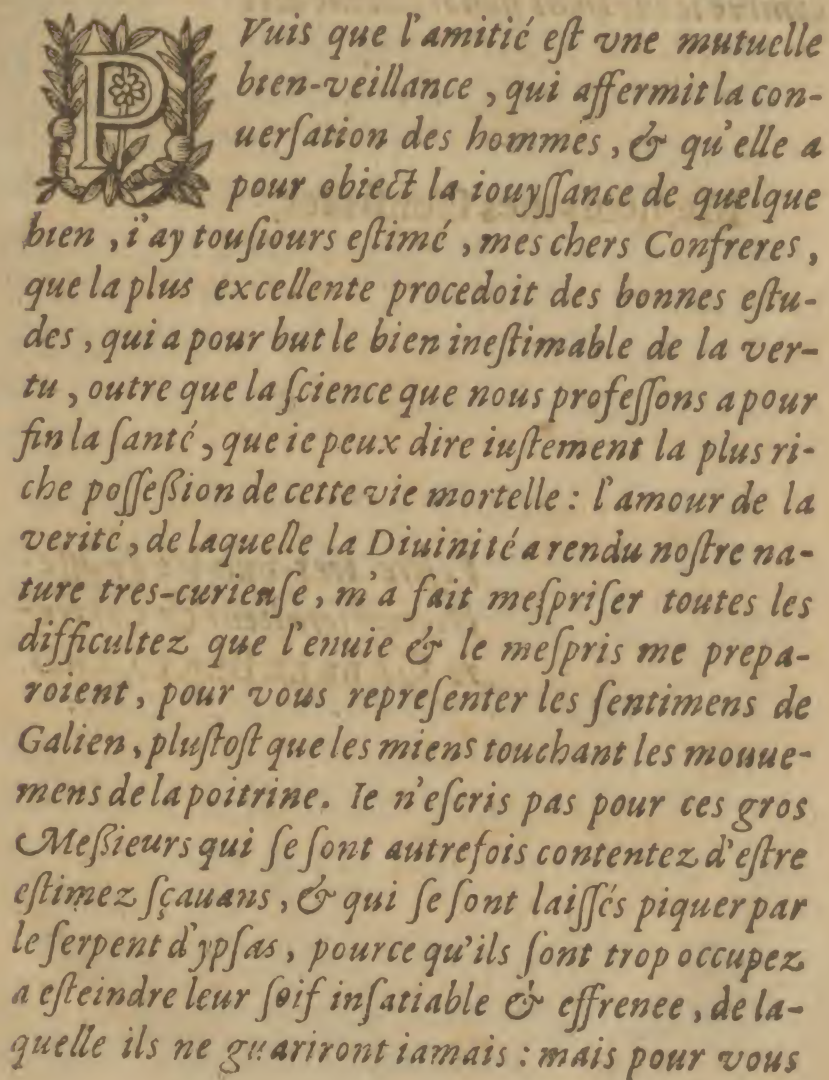 PVuis que l'amitié eſt vne mutuelle
bien-veillance , qui affermit la con-
uerſation des hommes , & qu'elle a
pour obiect la iouyſſance de quelque
bien , i'ay touſiours eſtimé , mes chers Confreres ,
que la plus excellente procedoit des bonnes eſtu-
des , qui a pour but le bien ineſtimable de la ver-
tu , outre que la ſcience que nous profeſſons a pour
fin la ſanté , que ie peux dire iuſtement la plus ri-
che poſſeſsion de cette vie mortelle : l'amour de la
verité , de laquelle la Diuinité a rendu noſtre na-
ture tres-curienſe , m'a fait meſpriſer toutes les
difficultez que l'enuie & le meſpris me prepa-
roient , pour vous repreſenter les ſentimens de
Galien , pluſtoſt que les miens touchant les mouue-
mens de la poitrine. Ie n'eſcris pas pour ces gros
Meſsieurs qui ſe ſont autrefois contentez d'eſtre
eſtimez ſçauans , & qui ſe ſont laiſſés piquer par
le ſerpent d'ypſas , pource qu'ils ſont trop occupez
a eſteindre leur ſoif inſatiable & effrenee , de la-
quelle ils ne guariront iamais : mais pour vous